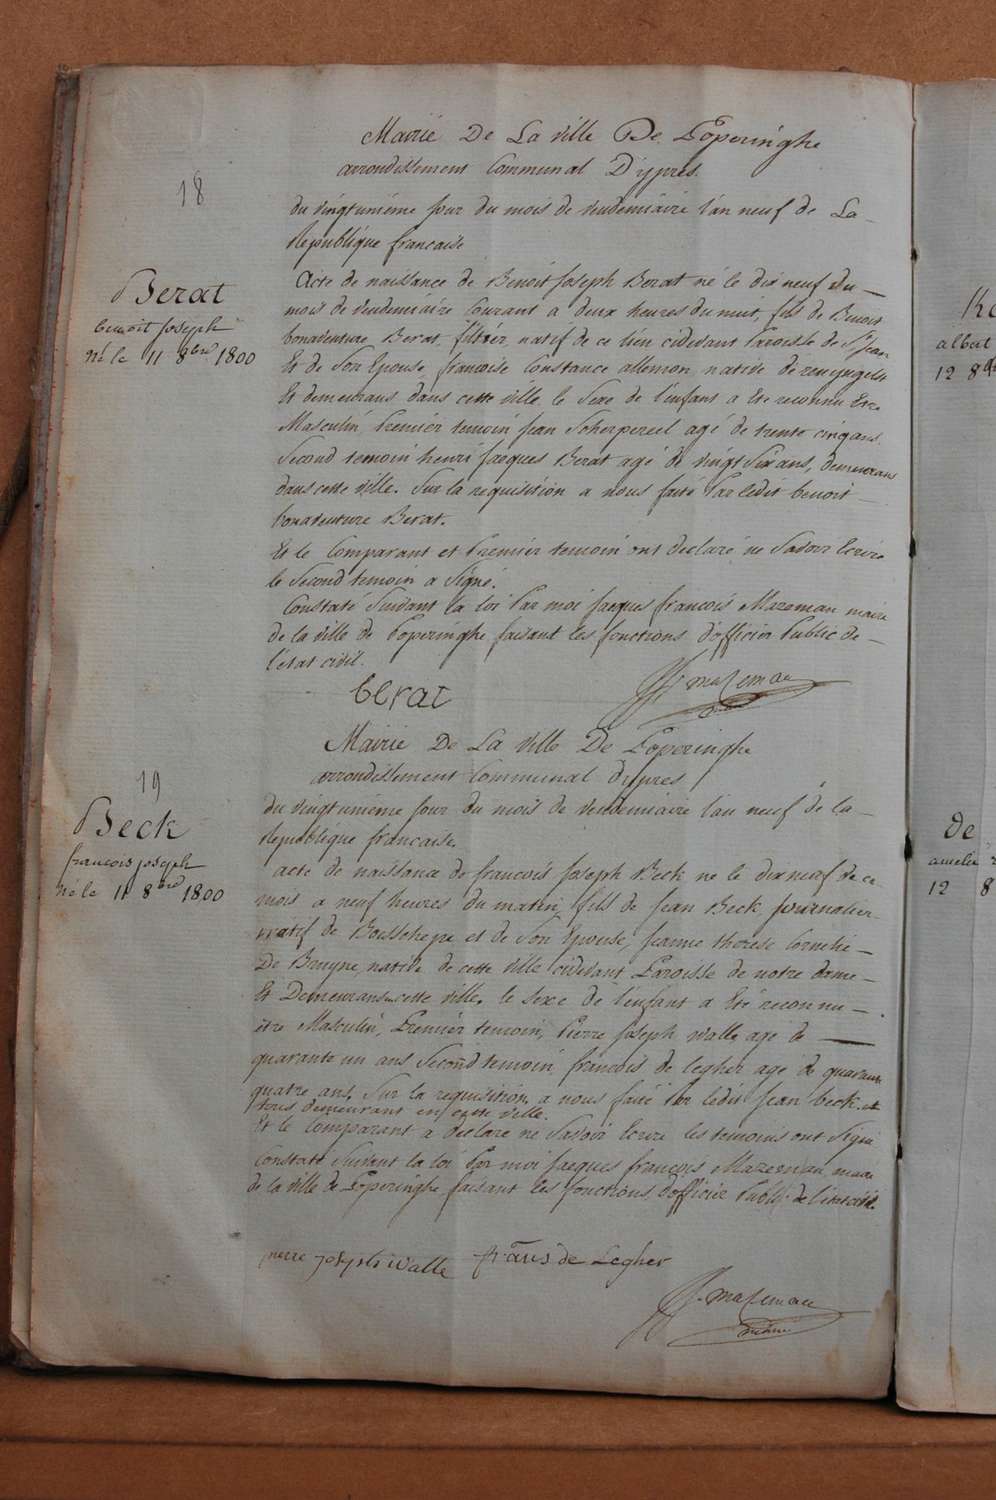 18
Mairie De La ville De Poperinghe
arrondissement Communal D'ypres.
du vingtunième jour du mois de vendemiaire l'an neuf de La
Republique francaise
Berat
benoit Joseph
né le 11 8bre 1800
Acte de naissance de Benoit Joseph Berat né le dix neuf du
mois de vendemiaire courant a deux heures du nuit, fils de Benoit
bonaventure Berat, natif de ce lieu cidevant Paroisse de St Jean
Et de Son Epouse, francoise Constance allemon native de reningelst
Et demeurans dans cette ville. le Sexe de l'enfant a été reconnu Etre
Masculin Premier temoin Jean Scherpereel agé de trente cinq ans.
Second temoin henri Jacques Berat agé de vingt Six ans, demeurans
dans cette ville. Sur la requisition a nous faite Par ledit benoit
bonaventure Berat.
Et le Comparant et Premier temoin ont declaré ne Savoir Ecrire
le Second temoin a Signé.
Constaté Suivant la loi Par moi Jacques francois Mazeman maire
de la ville de Poperinghe faisant les fonctions d'officier Public de
l'etat civil.
berat
J f mazeman
19
Mairie De La ville De Poperinghe
arrondissement Communal d'ypres
du vingtunième jour du mois de vendemiaire l'an neuf de la
Republique francaise.
Beck
francois joseph
né le 11 8bre 1800
acte de naissance de francois Joseph Beck né le dix neuf de ce
mois a neuf heures du matin, fils de Jean Beck, journalier
natif de Boesschepe et de Son Epouse, Jeanne therese Cornelie
De Bruyne, native de cette ville cidevant Paroisse de notre dame
Et Demeurans cette ville. le sexe de l'enfant a été reconnu
être Masculin, Premier temoin, Pierre Joseph walle agé de
quarante un ans, Second temoin francois de Legher agé de quarante
quatre ans. Sur la requisition a nous faite Par ledit Jean beck. et
tous demeurant en cette ville.
Et le Comparant a declaré ne Savoir Ecrire les temoins ont Signé
constaté Suivant la loi Par moi Jacques françois Mazeman maire
de la ville de Poperinghe faisant les fonctions d'officier Public de l'état civil.
pierre joseph walle
fransis de Legher
J f mazeman
albert
12 8
De
amelie
12 8